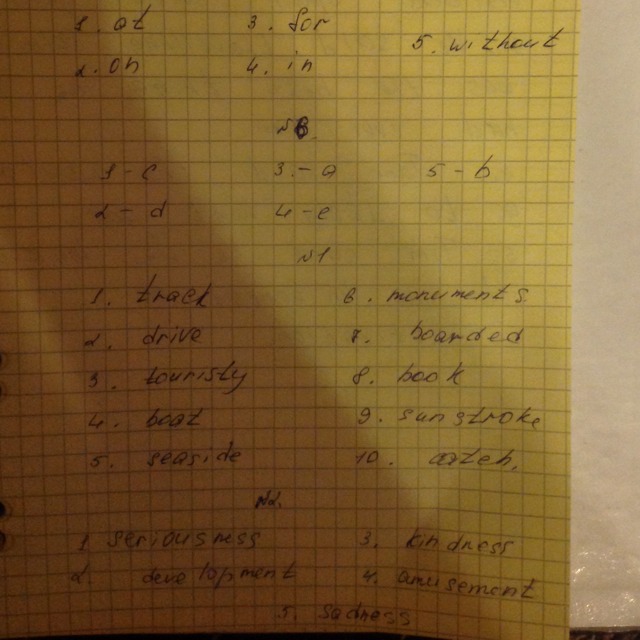 1. at 3. for 5. without
2. on 4. in
№6
1 - c 3. - a 5 - b
2 - d 4 - e
№1
1. track 6. monuments
2. drive 7. boarded
3. touristy 8. book
4. boat 9. sunstroke
5. seaside 10.
№2.
1 seriousness 3. kindness
2. development 4. amusement
5. sadness